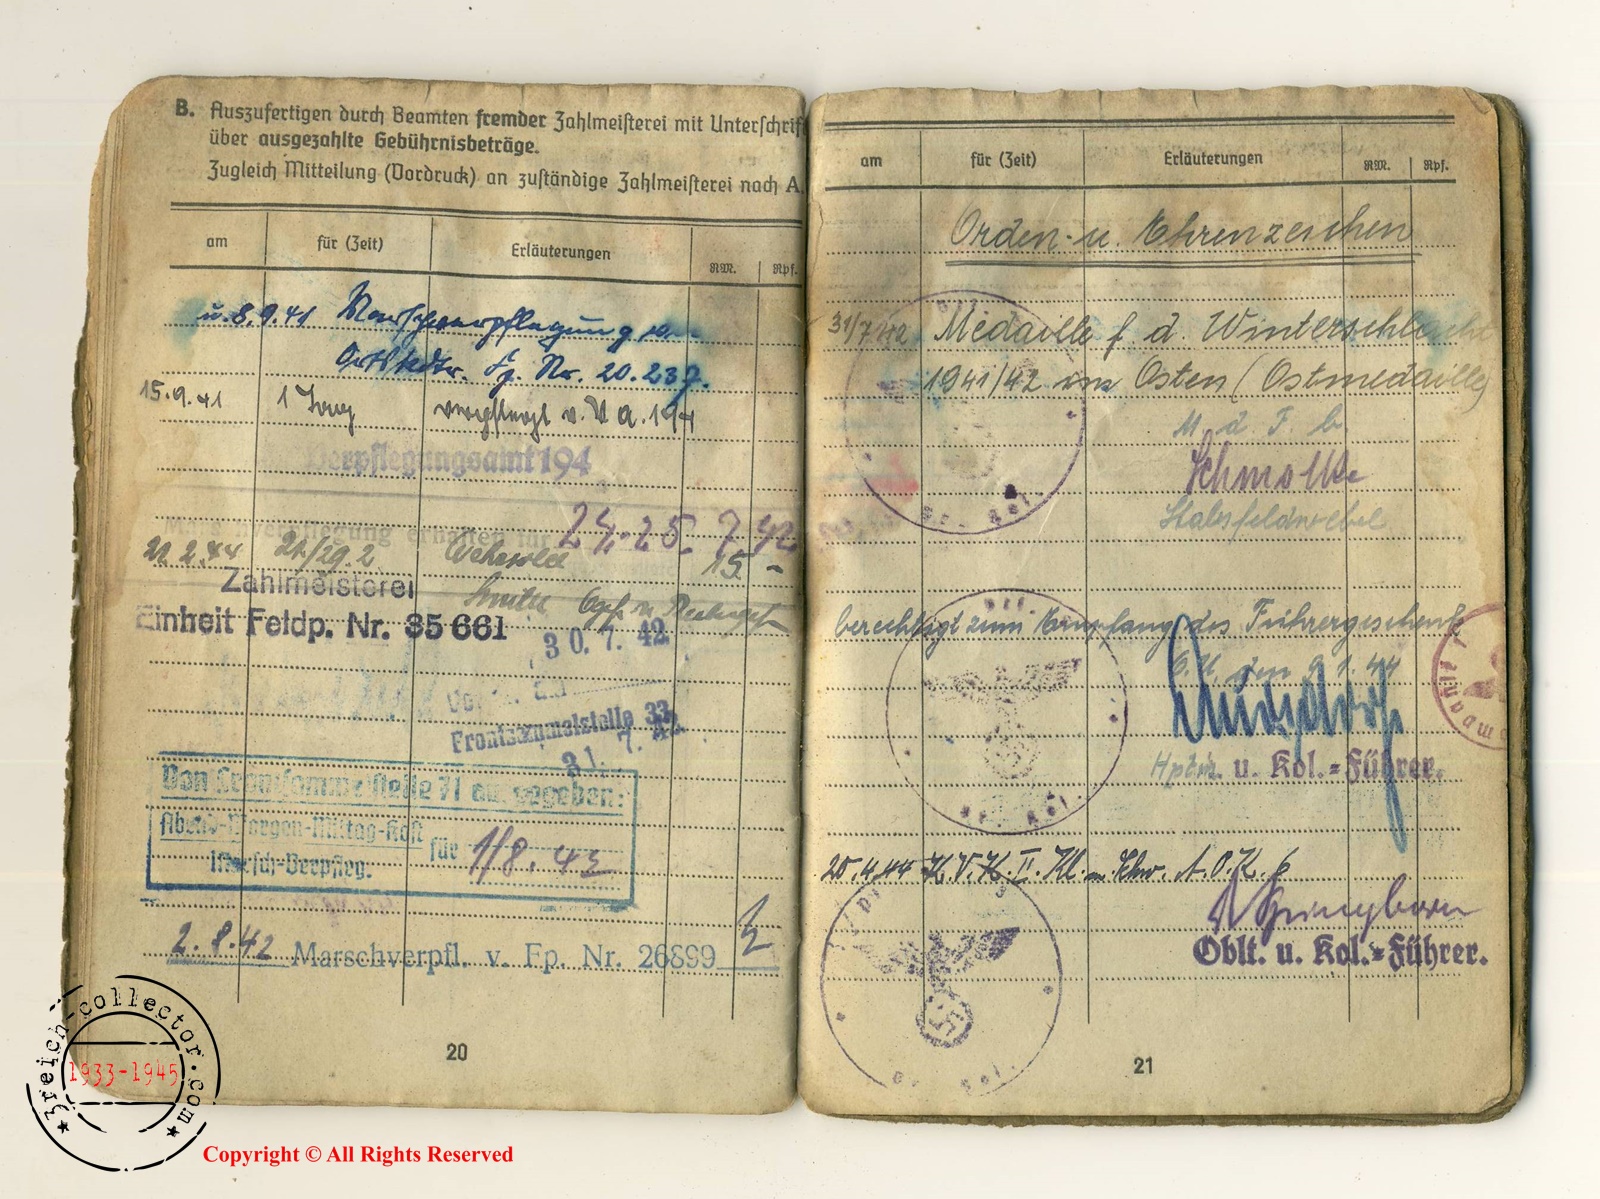 B. Auszufertigen durch Beamten fremder Zahlmeisterei mit Unterschrift
über ausgezahlte Gebührnisbeträge.
Zugleich Mitteilung (Vordruck) an zuständige Zahlmeisterei nach A.
am für (Zeit) Erläuterungen RM. Rpf.
u. 8.9.41 Marschverpflegung
Fp. Nr. 20.237.
15.9.41 1 Tag verpflegt v. V.A. 194
Verpflegungsamt 194
Marschverpflegung erhalten für 24.-25. 7 42
21.2.44 21./29.2. Wehrsold 15 -
Zahlmeisterei
Einheit Feldp. Nr. 35 661
30. 7. 42
Frontsammelstelle 33
31. 7. 42
Von Frontsammelstelle 71 ausgegeben:
Abend-Morgen-Mittag-Kost
für 1/8. 42
Marsch-Verpfleg.
2.8.42 Marschverpfl. v. Fp. Nr. 26899
20
am für (Zeit) Erläuterungen RM. Rpf.
Orden- u. Ehrenzeichen
31/7.42 Medaille f. d. Winterschlacht
1941/42 im Osten (Ostmedaille)
M d F b
Schmolke
Stabsfeldwebel
berechtigt zum Empfang des Führergeschenk
O.U. den 9.1.44
Hptm. u. Kol.=Führer.
20.4.44 K.V.K. II. Kl. m. Schw. A.O.K. 6
Oblt. u. Kol.=Führer.
21
3reich-collector.com
1933-1945
Copyright © All Rights Reserved